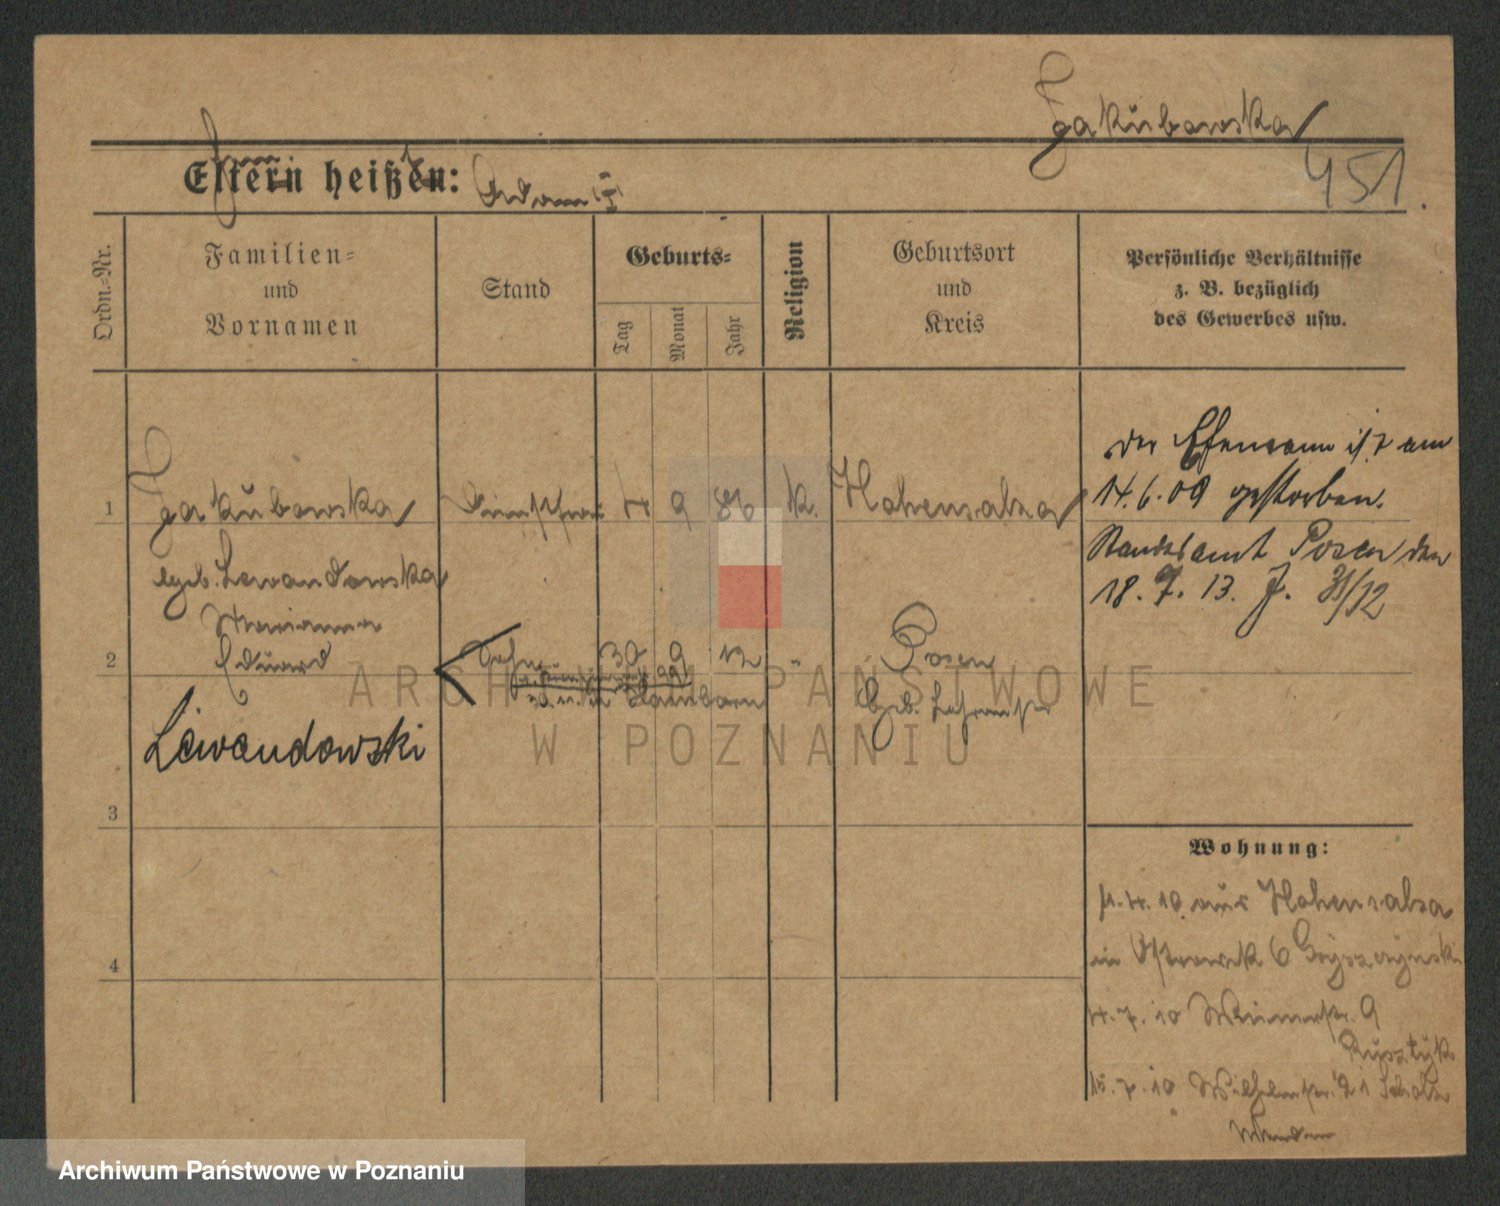 Jakubowska
451
Eltern heißen:
Ordn.-Nr.
Familien=
und
Vornamen
Stand
Geburts=
Tag
Monat
Jahr
Religion
Geburtsort
und
Kreis
Persönliche Verhältnisse
z. B. bezüglich
des Gewerbes usw.
1
Jakubowska
4 9 86
k.
Hohensalza
geb. Lewandowska
Marianna
2
Eduard
Sohn
30 9 12
"
Posen
Lewandowski
der Ehemann ist am
14.6.09 gestorben.
Standesamt Posen den
18. 7. 13. J. 31/12
3
4
Wohnung:
11. 4. 10 aus Hohensalza
in Ostrowek 6
4. 7. 10 9
15. 7. 10 Wilhelmstr. 21
ARCHIWUM PAŃSTWOWE
W POZNANIU
Archiwum Państwowe w Poznaniu